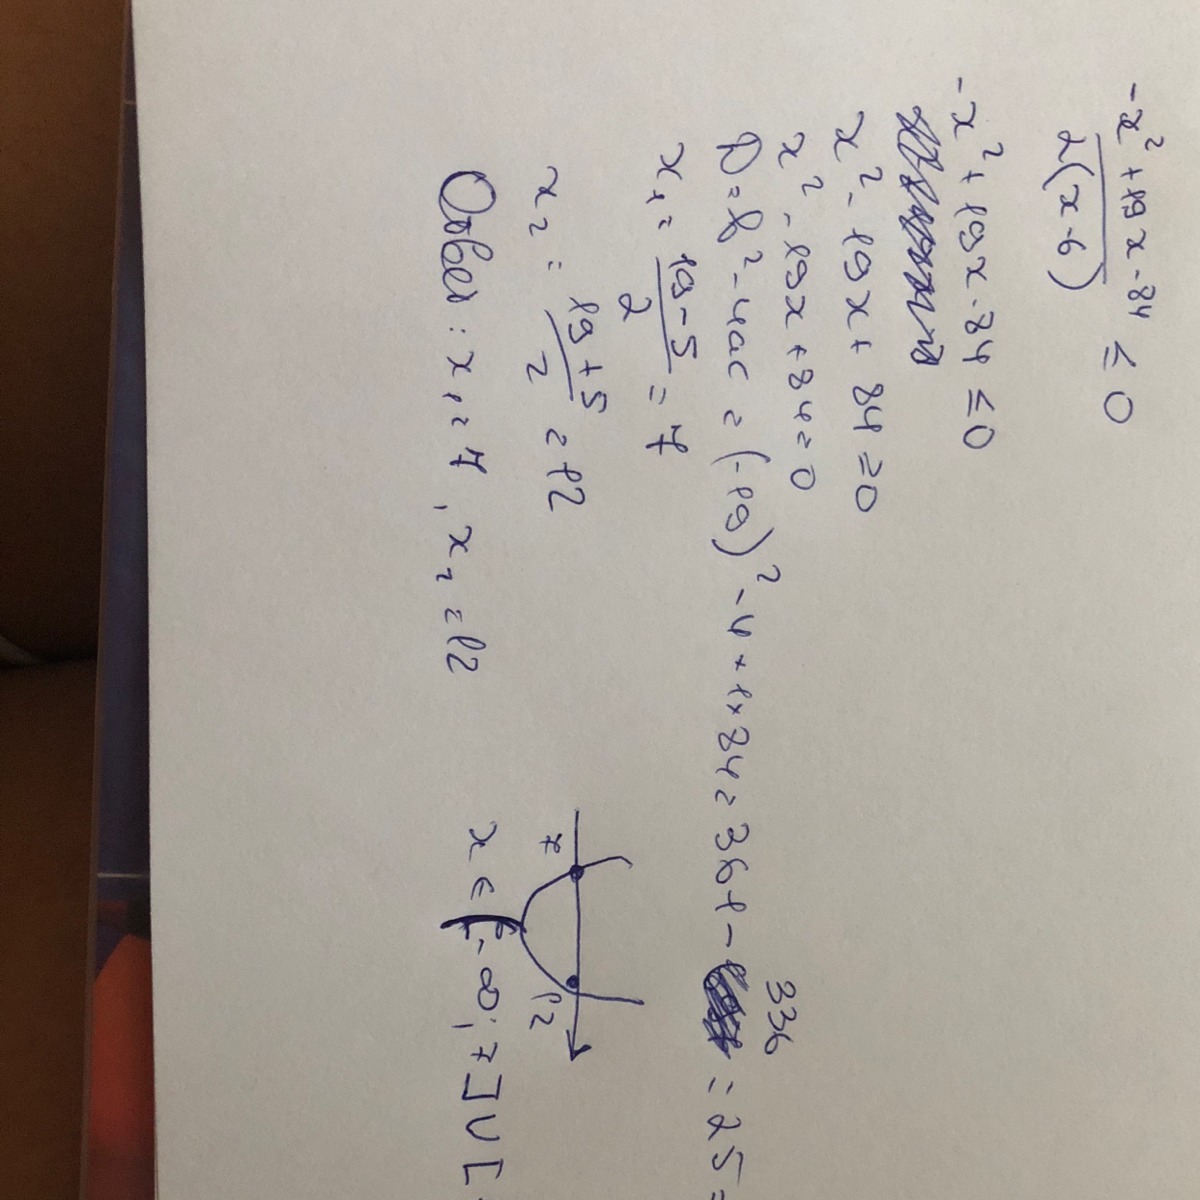 -x² + 19x - 84 / 2(x-6) ≤ 0
-x² + 19x - 84 ≤ 0
x² - 19x + 84 ≥ 0
x² - 19x + 84 = 0
D = b² - 4ac = (-19)² - 4 * 1 * 84 = 361 - 336 = 25 =
x₁ = 19 - 5 / 2 = 7
x₂ = 19 + 5 / 2 = 12
7 12
Ответ: x₁ = 7, x₂ = 12
x ∈ (-∞; 7] U [